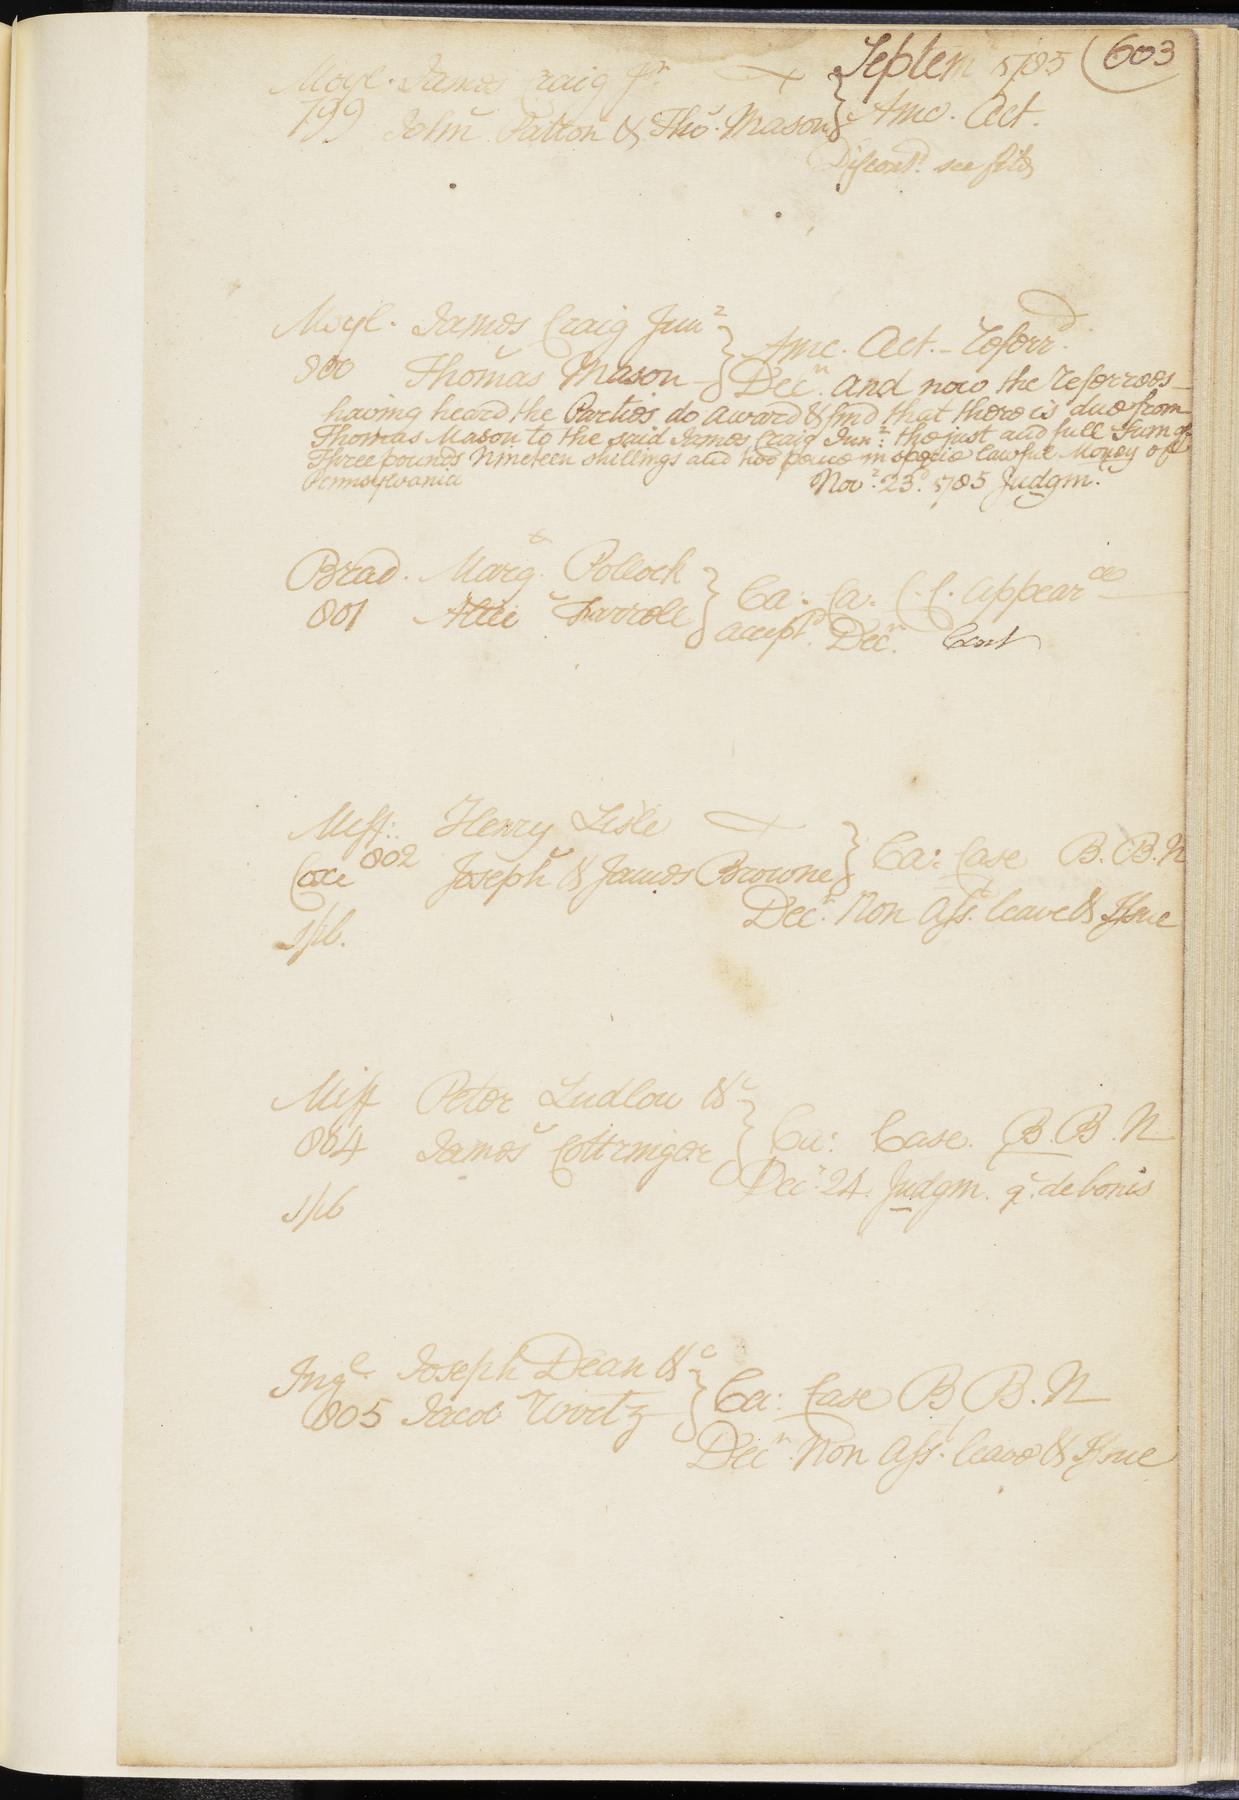 Septem 1785 (603
Moyl. James Craig Jr
799 John Patton & Tho.s Mason } Amc. Act.
Discont.d see file
Moyl. James Craig Junr
800 Thomas Mason } Amc. Act. - Referrd.
Decn. and now the referrees
having heard the Parties do award & find that there is due from
Thomas Mason to the said James Craig Junr. the just and full Sum of
Three pounds Nineteen shillings and two pence in specie lawful Money of
Pennsylvania Novr. 23d. 1785 Judgm.
Brad. Margt. Pollock
801 Alice } Ca: Ca. C. C. appearce
accept.d Decn. Cont
Miff: Henry Lisle
Coxe 802 Joseph & James Browne } Ca: Case B. B. N
Decn. Non Ass. leave & Issue
1/6.
Miff Peter Ludlow &c
804 James Cottringer } Ca: Case. B. B. N
Decr. 24. Judgm. q. de bonis
1/6
Ingl. Joseph Dean &c
805 Jacob } Ca: Case B B. N
Decn. Non Ass. leave & Issue